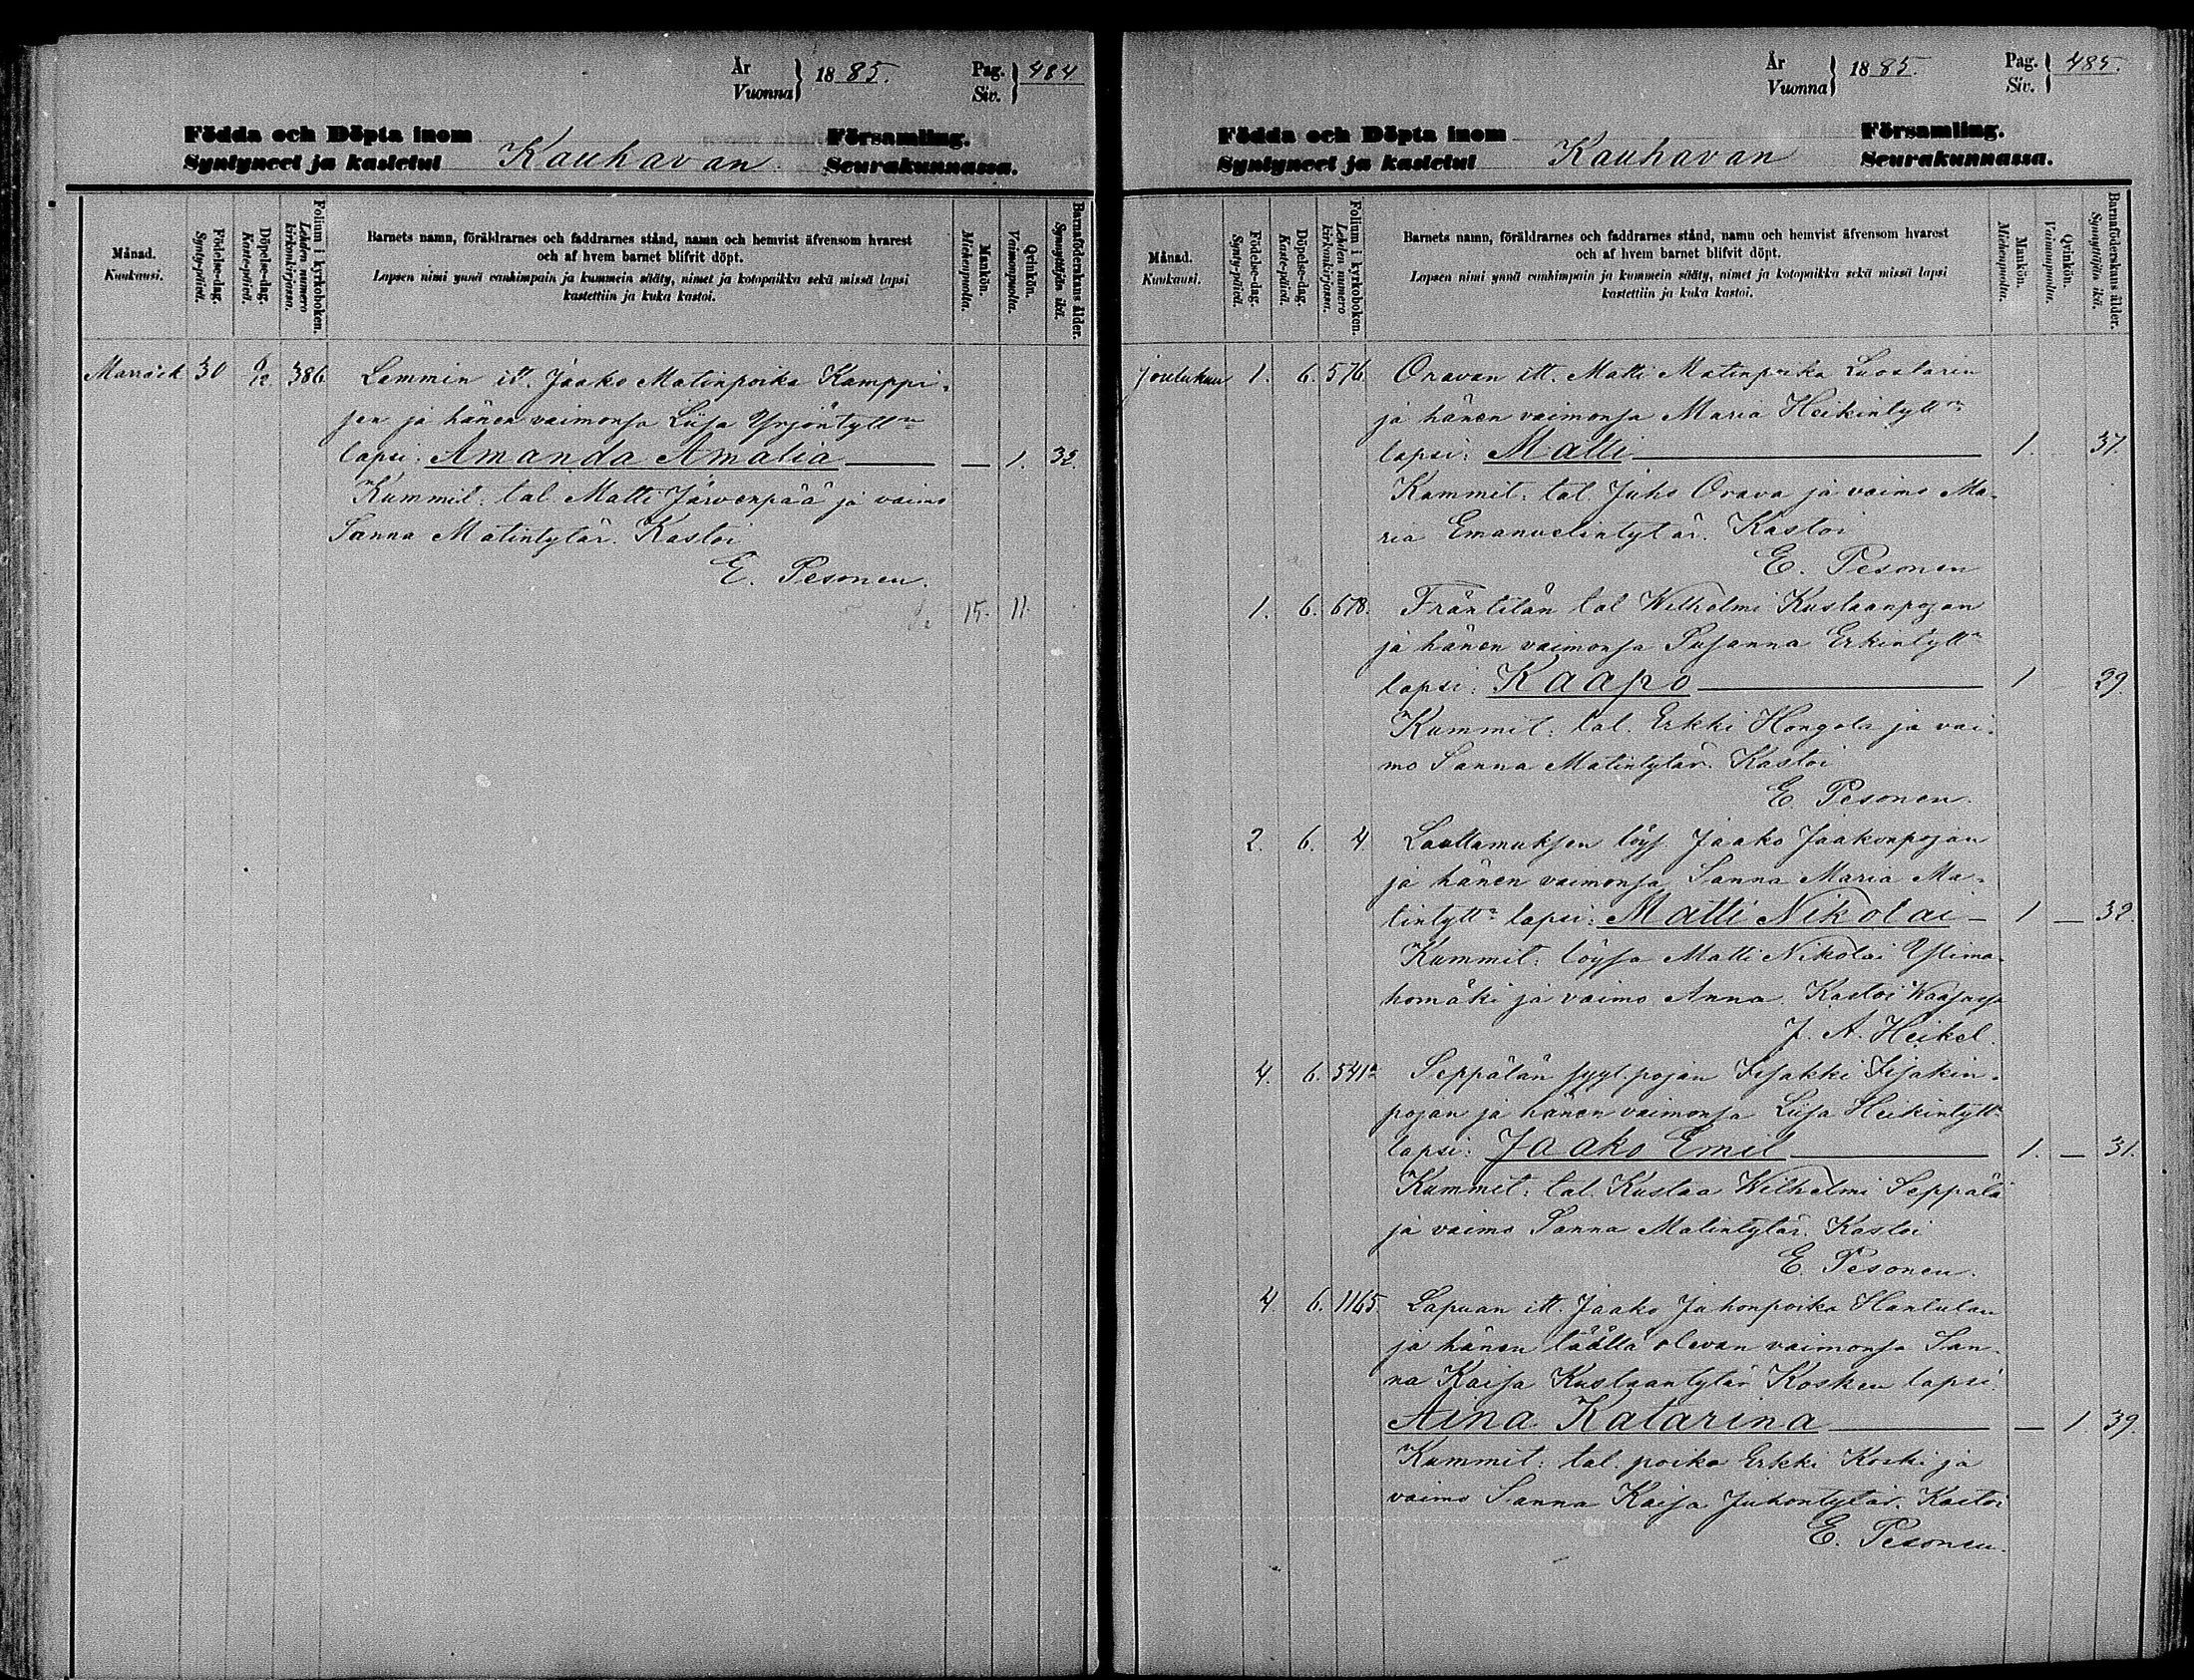 År
Vuonna } 1885.
Pag.
Siv. } 484
Födda och Döpta inom
Syntyneet ja kastetut Kauhavan
Församling.
Seurakunnassa.
Månad.
Kuukausi.
Födelse-dag.
Synty-päivä.
Döpelse-dag.
Kaste-päivä.
Folium i kyrkoboken.
Lehden numero kirkonkirjassa.
Barnets namn, föräldrarnes och faddrarnes stånd, namn och hemvist äfvensom hvarest
och af hvem barnet blifvit döpt.
Lapsen nimi ynnä vanhimpain ja kummein sääty, nimet ja kotopaikka sekä missä lapsi
kastettiin ja kuka kastoi.
Mankön.
Miehenpuolta.
Qvinkön.
Vaimonpuolta.
Barnaföderskans ålder.
Synnyttäjän ikä.
30 6/12 386 Lammin itt. Jaako Matinpoika Kamppi-
sen ja hänen vaimonsa Liisa Yrjöntyttn
lapsi: Amanda Amalia — — 1. 32.
Kummit: tal. Matti Järvenpää ja vaimo
Sanna Matintytär. Kastoi
E. Pesonen.
15. 11.
År
Vuonna } 1885.
Pag.
Siv. } 485.
Födda och Döpta inom
Syntyneet ja kastetut Kauhavan
Församling.
Seurakunnassa.
Månad.
Kuukausi.
Födelse-dag.
Synty-päivä.
Döpelse-dag.
Kaste-päivä.
Folium i kyrkoboken.
Lehden numero kirkonkirjassa.
Barnets namn, föräldrarnes och faddrarnes stånd, namn och hemvist äfvensom hvarest
och af hvem barnet blifvit döpt.
Lapsen nimi ynnä vanhimpain ja kummein sääty, nimet ja kotopaikka sekä missä lapsi
kastettiin ja kuka kastoi.
Mankön.
Miehenpuolta.
Qvinkön.
Vaimonpuolta.
Barnaföderskans ålder.
Synnyttäjän ikä.
joulukuu 1. 6. 576. Oravan itt. Matti Matinpoika Luostarin
ja hänen vaimonsa Maria Heikintyttn
lapsi: Matti — 1. 37.
Kummit: tal. Juho Orava ja vaimo Ma-
ria Emanuelintytär. Kastoi
E. Pesonen
1. 6. 678. Fräntilän tal Wilhelmi Kustaanpojan
ja hänen vaimonsa Susanna Erkintyttn
lapsi: Kaapo — 1 — 29.
Kummit: tal. Erkki Hongola ja vai-
mo Sanna Matintytär. Kastoi
E. Pesonen.
2. 6. 4. Lauttamuksen löys. Jaako Jaakonpojan
ja hänen vaimonsa Sanna Maria Ma-
tintyttn lapsi: Matti Nikolai — 1 — 32.
Kummit: löysä Matti Nikolai
ja vaimo Anna. Kastoi Waasassa
J. A. Heikel.
4. 6. 541a Seppälän syyt. pojan Iisakki Iisakin-
pojan ja hänen vaimonsa Liisa Heikintyttn
lapsi: Jaako Emil — 1. — 31.
Kummit: tal. Kustaa Wilhelmi Seppälä
ja vaimo Sanna Matintytär. Kastoi
E. Pesonen.
4 6. 1165. Lapuan itt. Jaako Juhonpoika Hantulan
ja hänen täällä olevan vaimonsa San-
na Kaisa Kustaantytär Kosken lapsi:
Aina Katarina — — 1. 39.
Kummit: tal. poika Erkki Koski ja
vaimo Sanna Kaisa Juhontytär. Kastoi
E. Pesonen.